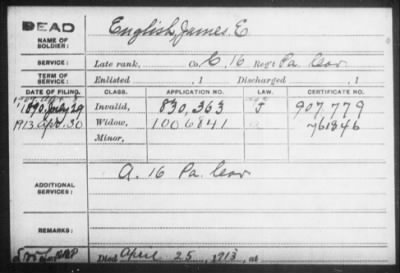 DEAD
English, James E
NAME OF
SOLDIER:
SERVICE:
Late rank, Co. C, 16 Reg't Pa. Cav
TERM OF
SERVICE:
Enlisted , 1 Discharged , 1
DATE OF FILING. CLASS. APPLICATION NO. LAW. CERTIFICATE NO.
1890, July 29 Invalid, 830,363 J 907,779
1913 Apr. 30 Widow, 1006841 761846
Minor,
ADDITIONAL
SERVICES:
A. 16 Pa Cav
REMARKS:
Died April 25, 1913, at